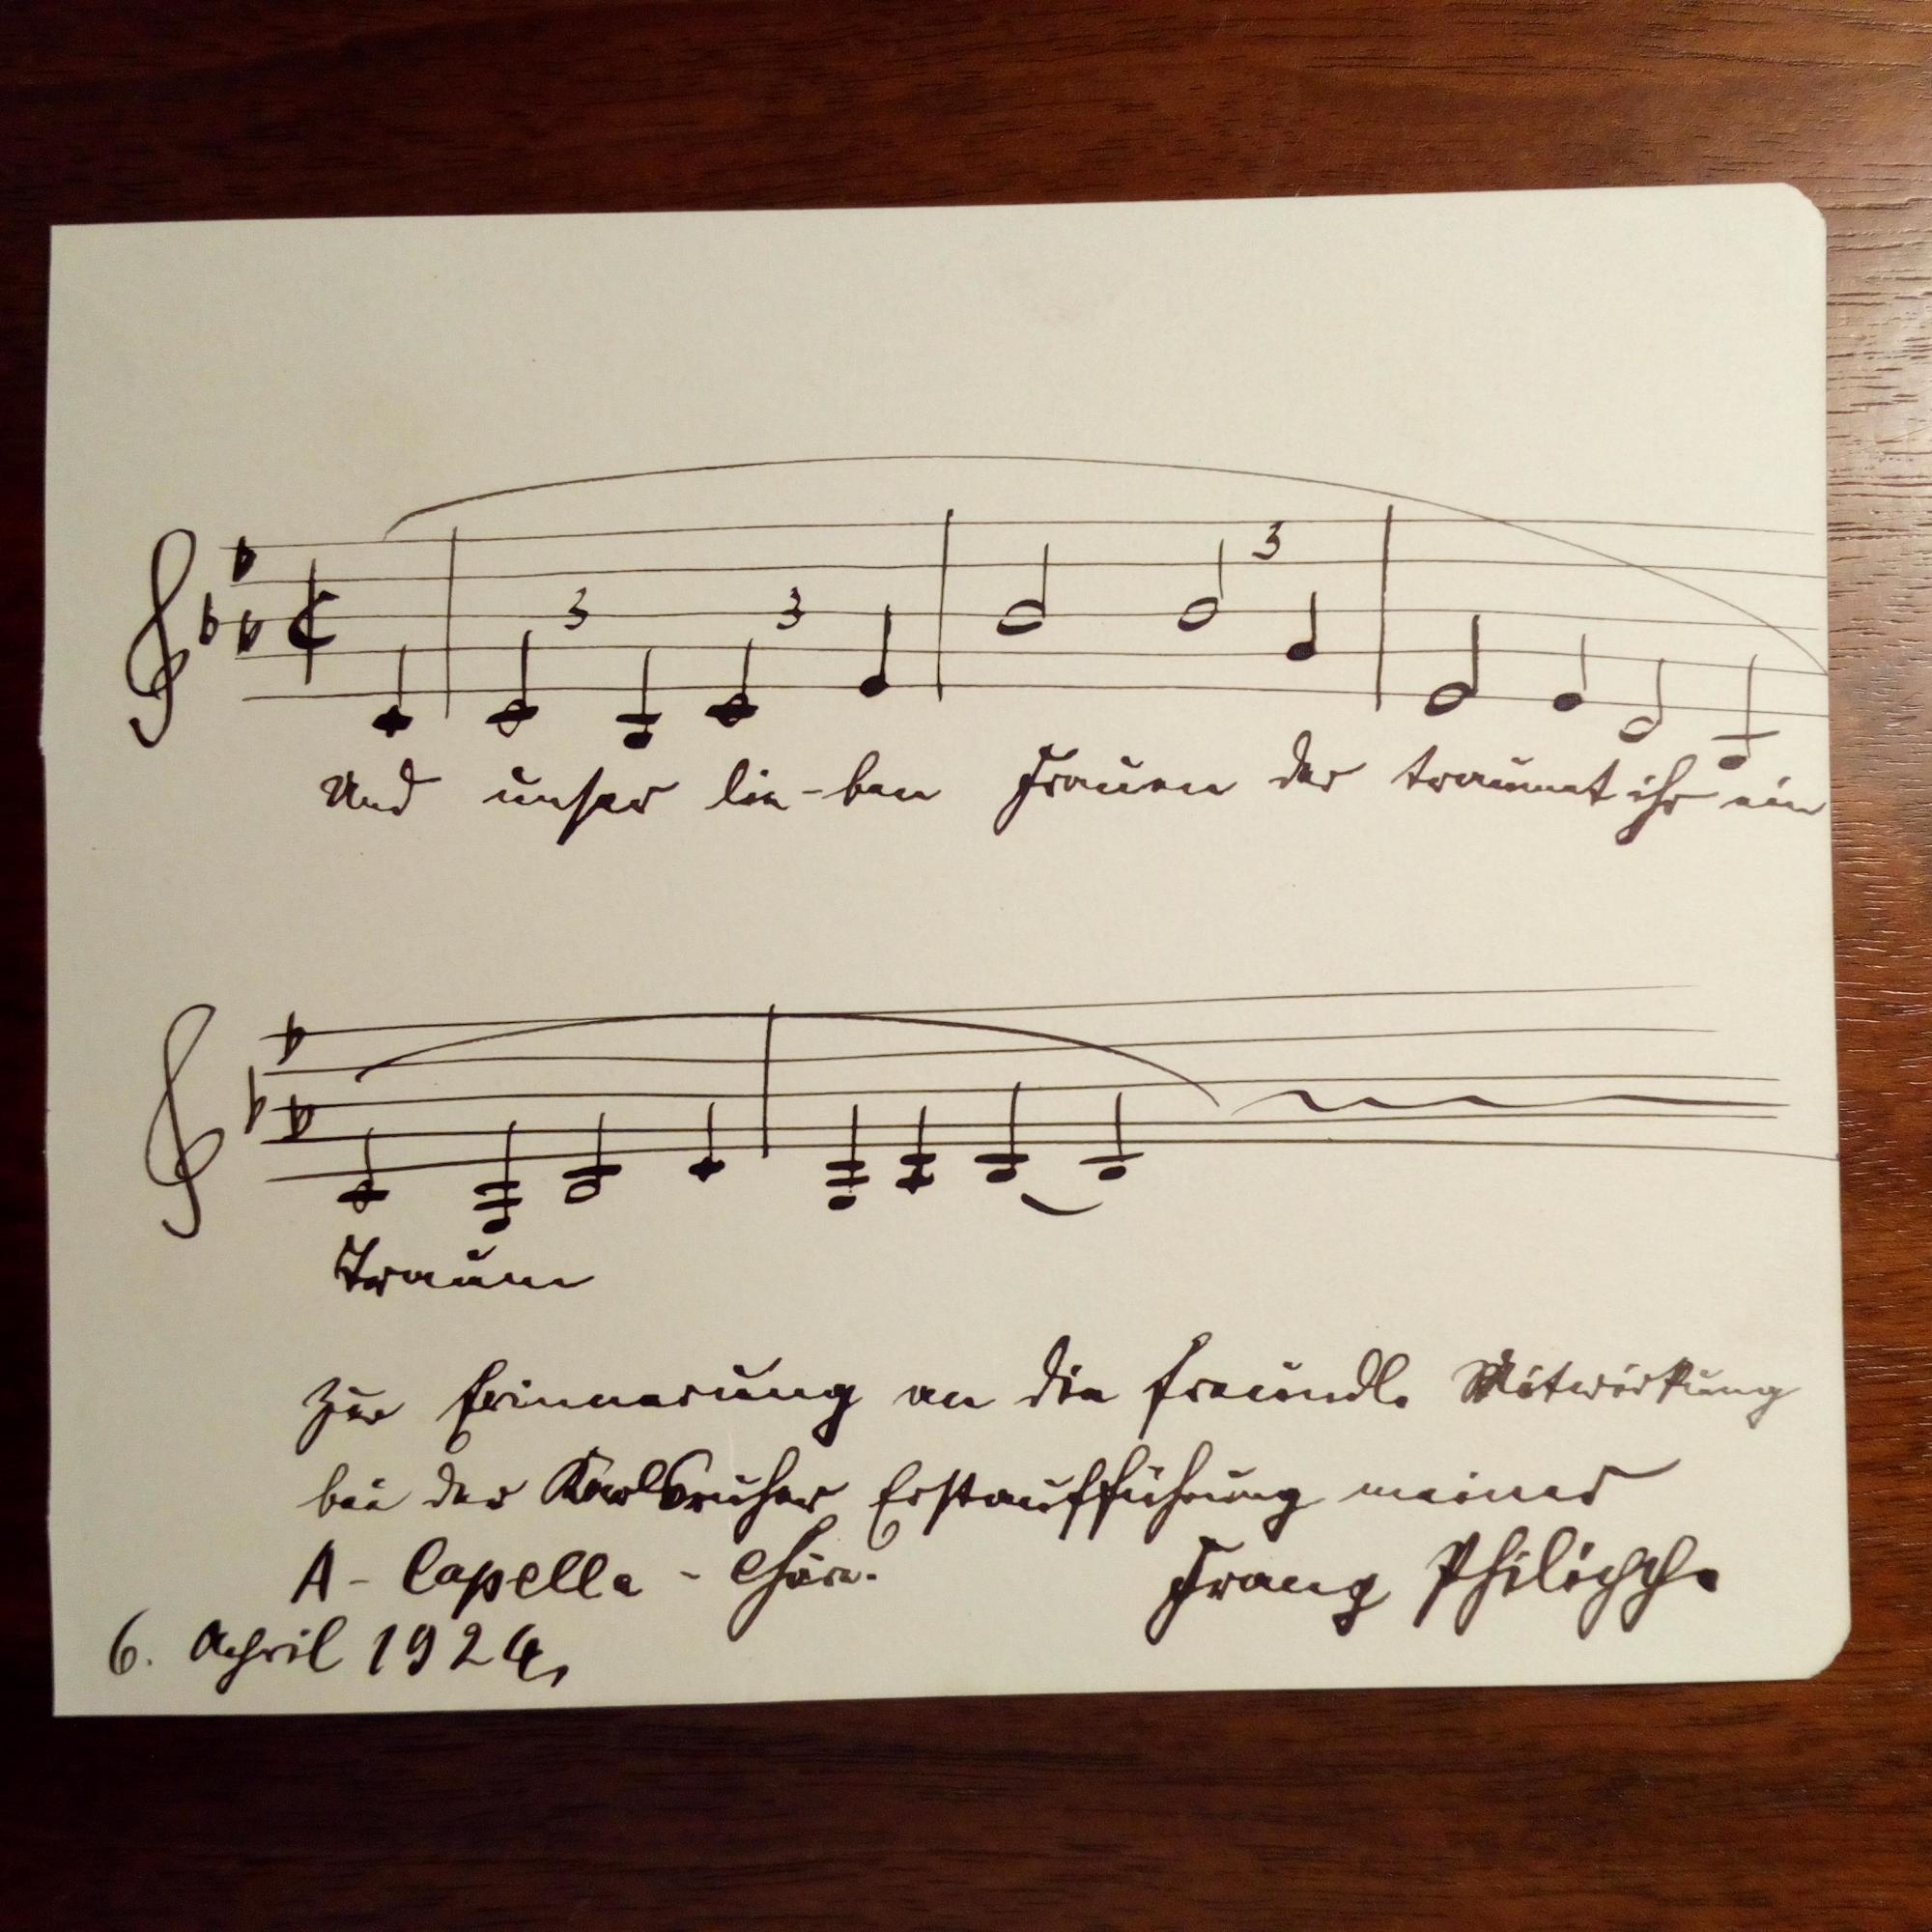 3 3 3
Und unser lie-ben Frauen der traumet ihr ein
Traum
Zur Erinnerung an die freundl. Mitwirkung
bei der Karlsruher Erstaufführung meiner
A-Capella-Chöre.
Franz Philipp.
6. April 1924.